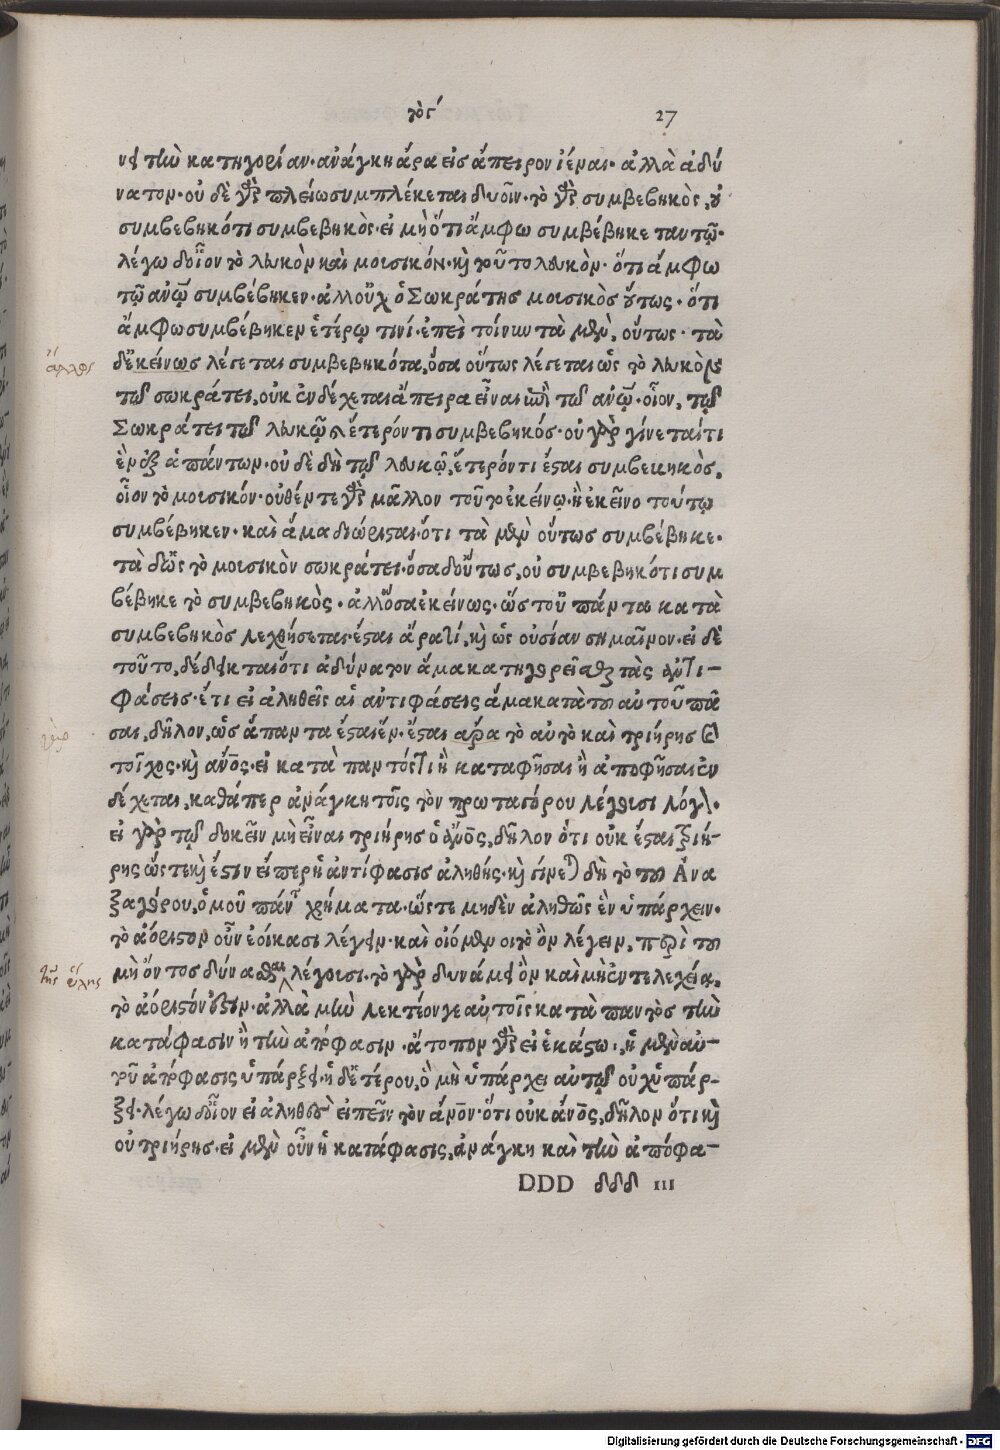 τὸ ϛ´ 27
νει τὴν κατηγορίαν· ἀνάγκη ἄρα εἰς ἄπειρον ἰέναι· ἀλλὰ ἀδύ
νατον· οὐ δὲ γὰρ πλείω συμπλέκεται δυοῖν· τὸ γὰρ συμβεβηκὸς, οὐ
συμβεβηκότι συμβεβηκὸς· εἰ μὴ ὅτι ἄμφω συμβέβηκε ταυτῷ·
λέγω δ' οἷον τὸ λευκὸν καὶ μουσικόν· καὶ τοῦτο λευκὸν· ὅτι ἄμφω
τῷ ἀνῷ συμβέβηκεν· ἀλλ' οὐχ ὁ Σωκράτης μουσικὸς οὕτως· ὅτι
ἄμφω συμβέβηκεν ἑτέρῳ τινί· ἐπεὶ τοίνυν τὰ μὲν, οὕτως· τὰ
δ' ἐκείνως λέγεται συμβεβηκότα, ὅσα οὕτως λέγεται ὡς τὸ λευκὸν
τῷ σωκράτει, οὐκ ἐνδέχεται ἄπειρα εἶναι ἐπὶ τῷ ἀνῷ· οἷον, τῷ
Σωκράτει τῷ λευκῷ ἕτερόν τι συμβεβηκός· οὐ γὰρ γίνεταί τι
ἓν ἐξ ἁπάντων· οὐ δὲ δὴ τῷ λευκῷ, ἕτερόν τι ἔσται συμβεκηκὸς,
οἷον τὸ μουσικόν· οὐθέν τε γὰρ μᾶλλον τοῦτο ἐκείνῳ· ἢ ἐκεῖνο τούτῳ
συμβέβηκεν· καὶ ἅμα διώρισται· ὅτι τὰ μὲν οὕτως συμβέβηκε·
τὰ δ' ὡς τὸ μουσικὸν σωκράτει· ὅσα δ' οὕτως, οὐ συμβεβηκότι συμ
βέβηκε τὸ συμβεβηκὸς· ἀλλ' ὅσα ἐκείνως· ὥστ' οὐ πάντα κατὰ
συμβεβηκὸς λεχθήσεται· ἔσται ἄρα τί, καὶ ὡς οὐσίαν σημαῖνον· εἰ δὲ
τοῦτο, δέδεικται ὅτι ἀδύνατον ἅμα κατηγορεῖσθαι τὰς ἀντι-
φάσεις· ἔτι εἰ ἀληθεῖς αἱ αντιφάσεις ἅμα κατὰ του αυτοῦ πᾶ
σαι, δῆλον, ὡς ἅπαντα ἔσται ἕν· ἔσται ἄρα τὸ αὐτὸ καὶ τριήρης καὶ
τοῖχος· καὶ ἄνος· εἰ κατὰ παντός τι ἢ καταφῆσαι ἢ ἀποφῆσαι ἐν
δέχεται, καθάπερ ἀνάγκη τοῖς τὸν πρωταγόρου λέγουσι λόγον·
εἰ γάρ τῳ δοκεῖν μὴ εἶναι τριήρης ὁ ἄνος, δῆλον ὅτι οὐκ ἔσται τριή-
ρης ὥστε καὶ ἔστιν εἴπερ ἡ ἀντίφασις ἀληθής· καὶ γίνεται δὴ τὸ του Ἀνα
ξαγόρου, ὁμοῦ πάντα χρήματα· ὥστε μηδὲν ἀληθῶς ἓν ὑπάρχειν·
τὸ ἀόριστον οὖν ἐοίκασι λέγειν· καὶ οἰόμενοι τὸ ὂν λέγειν, περὶ του
μὴ ὄντος δύνασθαι λέγουσι· τὸ γὰρ δυνάμει ὂν καὶ μὴ ἐντελεχείᾳ,
τὸ ἀόριστόν ἐστιν· ἀλλὰ μὴν λεκτέον γε αὐτοῖς κατὰ παντὸς τὴν
κατάφασιν ἢ τὴν ἀπόφασιν· ἄτοπον γὰρ εἰ ἑκάστῳ ἡ μὲν αὐ-
τοῦ ἀπόφασις ὑπάρξει· ἡ δ' ἑτέρου, ὃ μὴ ὑπάρχει αὐτῷ οὐχ ὑπάρ-
ξει· λέγω δ' οἷον εἰ ἀληθὲς εἰπεῖν τὸν ἄνον· ὅτι οὐκ ἄνος, δῆλον ὅτι καὶ
οὐ τριήρης· εἰ μὲν οὖν ἡ κατάφασις, ἀνάγκη καὶ τὴν ἀπόφα-
DDD δδδ III
τῆς ὕλης